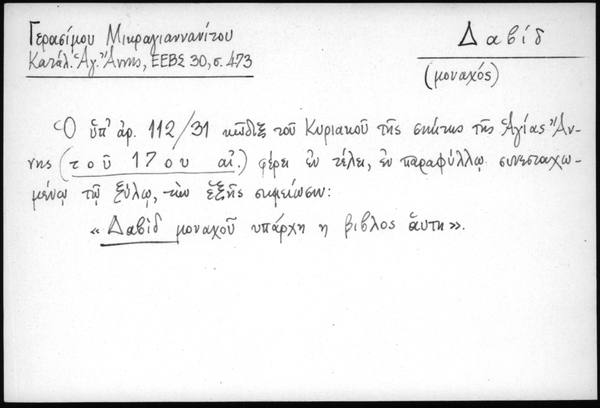 Γερασίμου Μικραγιαννανίτου
Κατάλ. Ἁγ. Ἄννης, ΕΕΒΣ 30, σ. 473
Δαβίδ
(μοναχός)
Ὁ ὑπ' ἀρ. 112/31 κῶδιξ τοῦ Κυριακοῦ τῆς σκήτης τῆς Ἁγίας Ἄν-
νης (τοῦ 17ου αἰ.) φέρει ἐν τέλει, ἐν παραφύλλῳ συνεσταχω-
μένῳ τῷ ξύλῳ, τὴν ἑξῆς σημείωσιν:
«Δαβὶδ μοναχοῦ υπάρχη η βιβλος ἅυτη».